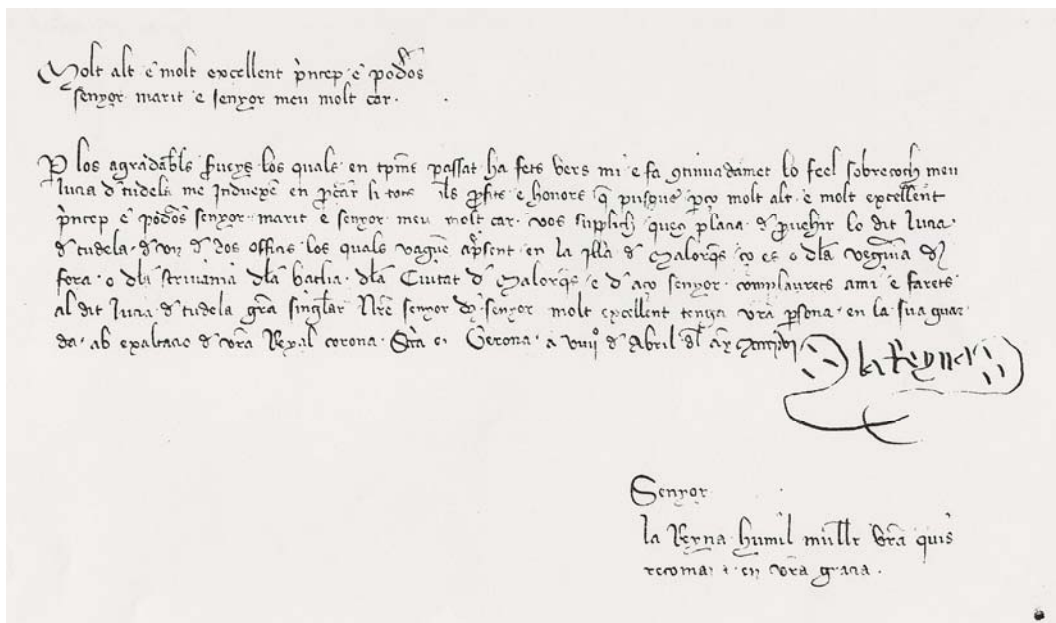 Molt alt e molt excellent p̀ncep e podos
senyor marit e senyor meu molt car.
P los agradabls ẞueys los quals en tpms passat ha fets vers mi e fa ↄtinuadamet lo feel sobrecoch meu
lucia d tudela me induexē en pcar li tots ils pfits e honors q pusque pço molt alt e molt excellent
p̀ncep e podos senyor marit e senyor meu molt car vos supplich queus placia d puehir lo dit lucia
d tudela d un d dos officis los quals vaguē apsent en la illa d Malorqs ço es o dla vegia d
fora o dla scrivania dla batlia dla Ciutat d Malorqs e d aço senyor complaurets ami e farets
al dit lucia d tudela gra singlar Nre senyor deu senyor molt excellent tenga vra psona en la sua guar
da ab exaltacio d vra Reyal corona en Gerona a d Abril dl any
la Reyna
Senyor
la Reyna humil mullr vra quis
recomana en vra gracia.